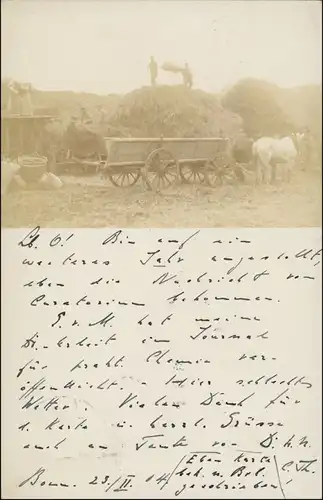 Lb. O! Bin auf ein
weiteres Jahr angestellt,
eben die Nachricht vom
Curatorium bekommen.
E. v. M. hat meine
Dr.-Arbeit im Journal
für prakt. Chemie ver-
öffentlicht, - Hier schlecht
Wetter. Vielen Dank für
d. Karte u. herzl. Grüsse
auch an Tante von D. l. N.
Bonn. 23./II. 04 (Eben Karte
bek. u. Brf. C. Th.
geschrieben)